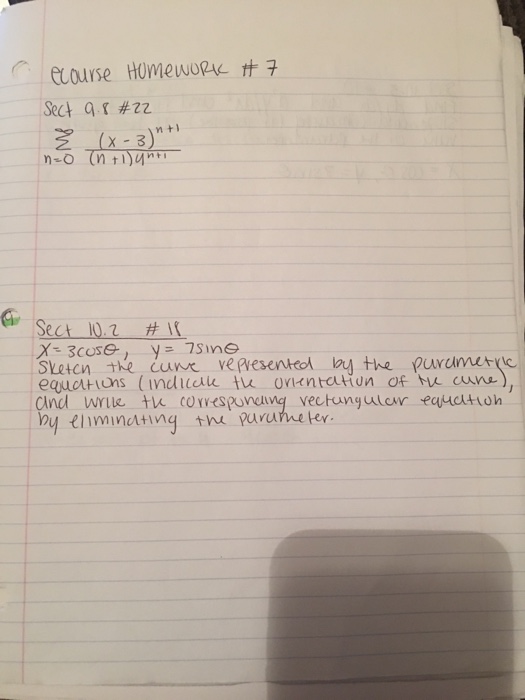 ecourse Homework # 7
Sect 9.8 #22
∞
Σ (x - 3)^n+1
n=0 (n+1)4^n+1
Sect 10.2 # 18
x = 3cosθ, y = 7sinθ
Sketch the curve represented by the parametric
equations (indicate the orientation of the curve),
and write the corresponding rectangular equation
by eliminating the parameter.